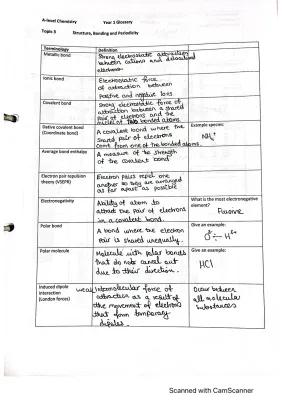 A-level Chemistry Year 1 Glossary
Topic 3 Structure, Bonding and Periodicity
Terminology Definition
Metallic bond Strong electrostatic attraction
between cations and delocalised
electrons
Ionic bond Electrostatic force
of attraction between
positive and negative ions
Covalent bond Strong electrostatic force of
attraction between a shared
pair of electrons and the
nuclei of two bonded atoms.
Dative covalent bond A covalent bond where the Example species:
(Coordinate bond) shared pair of electrons NH4+
come from one of the bonded atoms.
Average bond enthalpy A measure of the strength
of the covalent bond
Electron pair repulsion Electron pairs repel one
theory (VSEPR) another so they are arranged
as far apart as possible
Electronegativity Ability of atom to What is the most electronegative
attract the pair of electrons element?
in a covalent bond. Fluorine
Polar bond A bond where the electron Give an example:
pair is shared unequally.
Polar molecule Molecule with polar bonds Give an example:
that do not cancel out HCl
due to their direction.
Induced dipole weak Intermolecular force of Occur between
interaction attraction as a result of all molecular
(London forces) the movement of electrons substances
that form temporary
dipoles.
Scanned with CamScanner